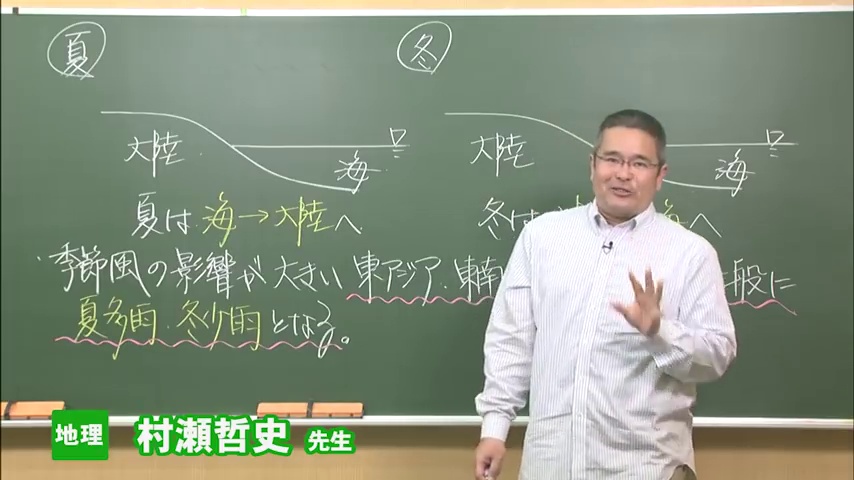 夏
冬
大陸
海
大陸
海
夏は 海→大陸へ
冬は
へ
季節風の影響が大きい 東アジア・東南
般に
夏多雨、冬少雨となる。
地理 村瀬哲史 先生